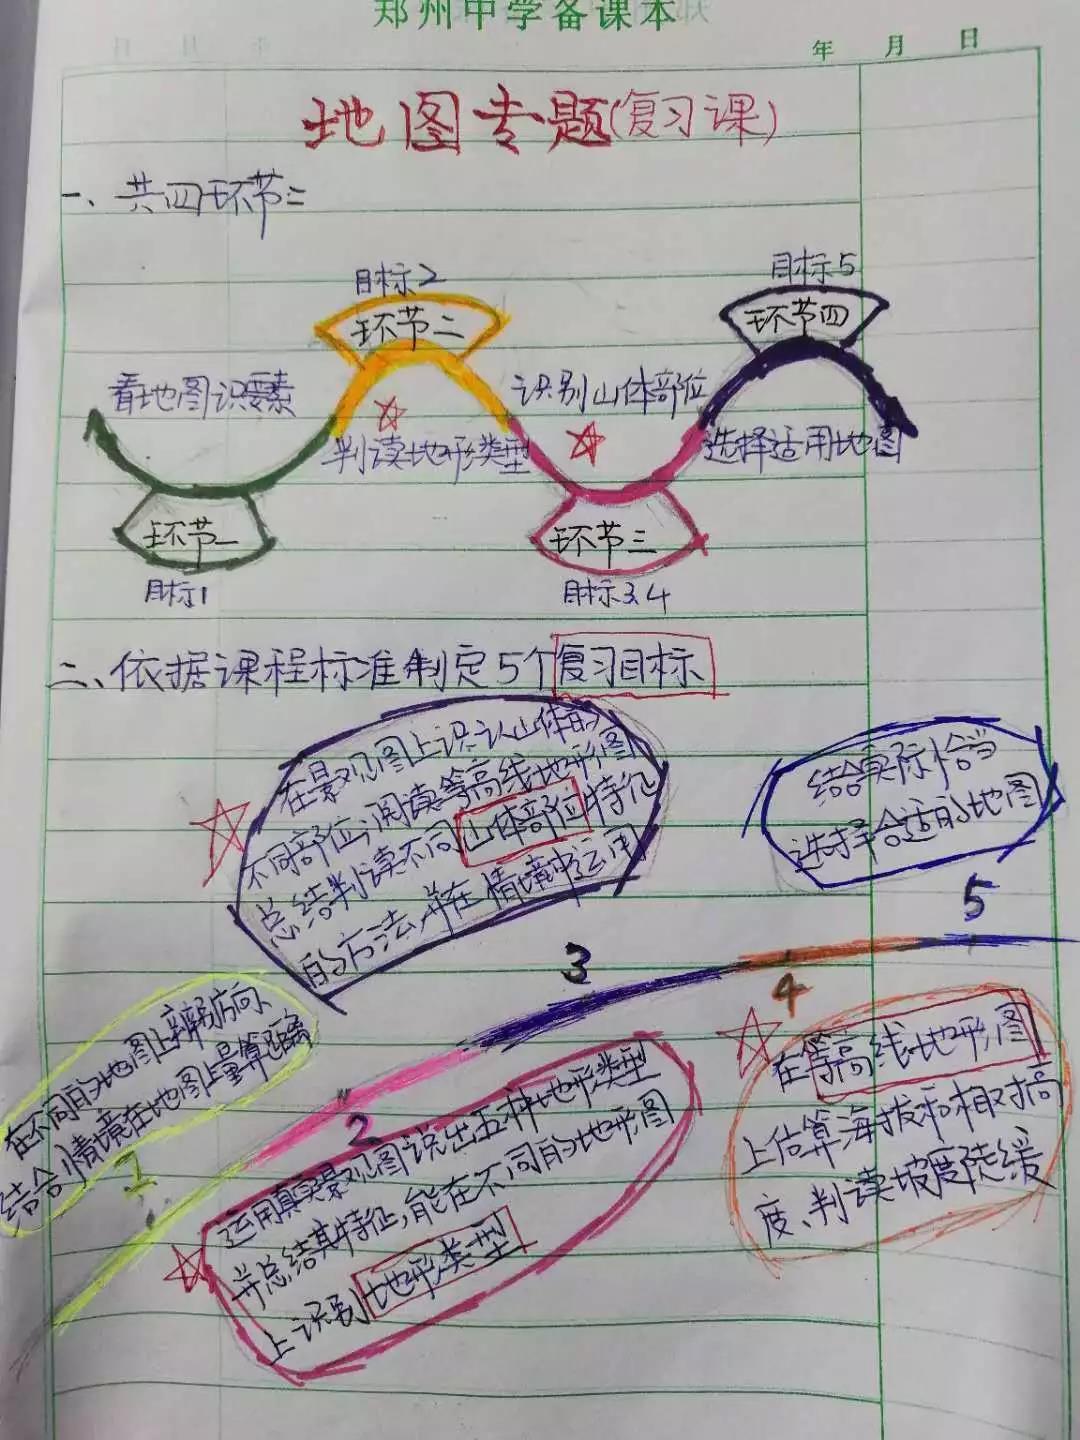 郑州中学备课本
年 月 日
地图专题(复习课)
一、共四环节:
目标2
目标5
环节二
环节四
看地图识要素
识别山体部位
判读地形类型
选择适用地图
环节一
环节三
目标1
目标3、4
二、依据课程标准制定5个复习目标
在景观图上识认山体的
不同部位;阅读等高线地形图
总结判读不同山体部位特征
的方法,并在情境中运用
结合实际恰当
选择合适的地图
5
3
4
在不同的地图上辨别方向、
结合情境在地图上量算距离
1
2
运用真实景观图说出五种地形类型
并总结其特征,能在不同的地形图
上识别地形类型
在等高线地形图
上估算海拔和相对高
度、判读坡度陡缓